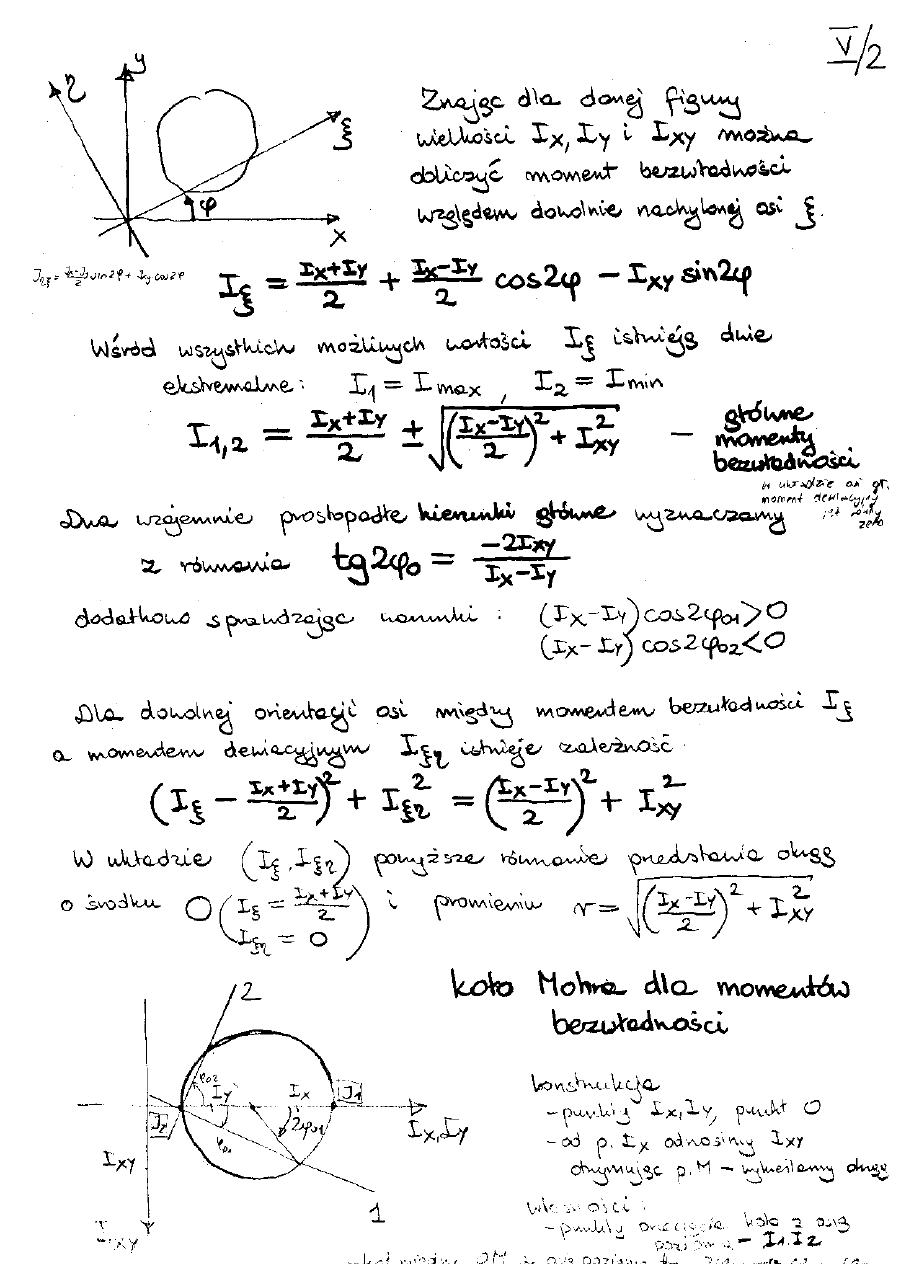 V/2
η
y
ξ
φ
x
Znając dla danej figury
wielkości Ix, Iy i Ixy można
obliczyć moment bezwładności
względem dowolnie nachylonej osi ξ.
Iηξ = (Ix-Iy)/2 sin2φ + Ixy cos2φ
Iξ = (Ix+Iy)/2 + (Ix-Iy)/2 cos2φ - Ixy sin2φ
Wśród wszystkich możliwych wartości Iξ istnieją dwie
ekstremalne: I1 = Imax, I2 = Imin
I1,2 = (Ix+Iy)/2 ± √(((Ix-Iy)/2)² + Ixy²) -
główne
momenty
bezwładności
w układzie osi gł.
moment dewiacyjny
jest równy
zero
Dwa wzajemnie prostopadłe kierunki główne wyznaczamy
z równania tg2φ0 = -2Ixy/(Ix-Iy)
dodatkowo sprawdzając warunki: (Ix-Iy)cos2φ01>0
(Ix-Iy)cos2φ02<0
Dla dowolnej orientacji osi między momentem bezwładności Iξ
a momentem dewiacyjnym Iξη istnieje zależność.
(Iξ - (Ix+Iy)/2)² + Iξη² = ((Ix-Iy)/2)² + Ixy²
W układzie (Iξ, Iξη) powyższe równanie przedstawia okrąg
o środku O(Iξ = (Ix+Iy)/2 i promieniu r = √(((Ix-Iy)/2)² + Ixy²)
Iξη = 0)
koło Mohra dla momentów
bezwładności
2
φ02
Iy
Ix
I1
I2
φ01
2φ01
Ix, Iy
Ixy
1
Ixy
konstrukcja
- punkty Ix, Iy, punkt O
- od p. Ix odnosimy Ixy
otrzymując p. M - wykreślamy okrąg
własności:
- punkty przecięcia koła z osią
poziomą - I1, I2